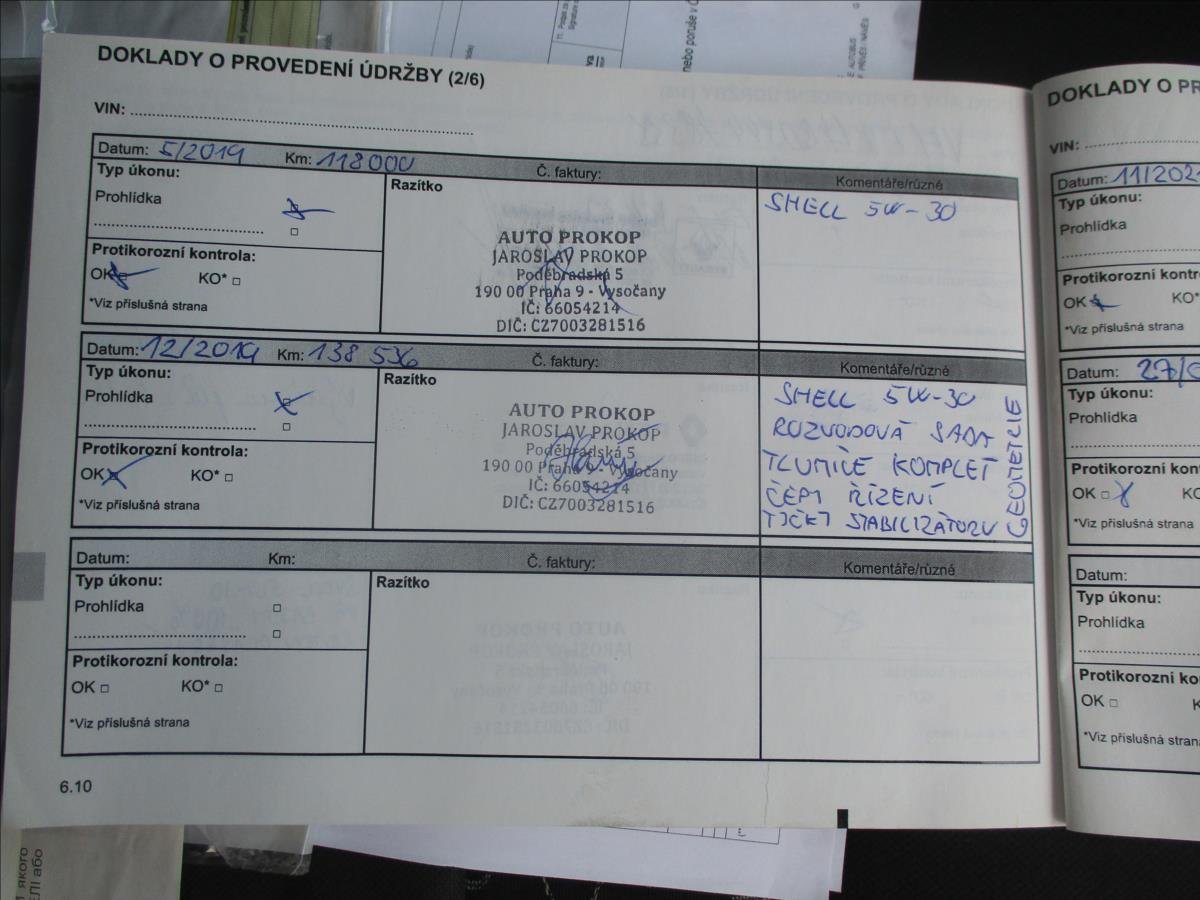 DOKLADY O PROVEDENÍ ÚDRŽBY (2/6)
VIN:
Datum: 5/2019 Km: 118000 Č. faktury: Komentáře/různé
Typ úkonu:
Prohlídka
Protikorozní kontrola:
OK KO*
*Viz příslušná strana
Razítko
AUTO PROKOP
JAROSLAV PROKOP
Poděbradská 5
190 00 Praha 9 - Vysočany
IČ: 66054214
DIČ: CZ7003281516
SHELL 5W-30
Datum: 12/2019 Km: 138 536 Č. faktury: Komentáře/různé
Typ úkonu:
Prohlídka
Protikorozní kontrola:
OK KO*
*Viz příslušná strana
Razítko
AUTO PROKOP
JAROSLAV PROKOP
Poděbradská 5
190 00 Praha 9 - Vysočany
IČ: 66054214
DIČ: CZ7003281516
SHELL 5W-30
ROZVODOVÁ SADA
TLUMIČE KOMPLET
ČEPY ŘÍZENÍ
TYČKY STABILIZÁTORU
GEOMETRIE
Datum: Km: Č. faktury: Komentáře/různé
Typ úkonu:
Prohlídka
Protikorozní kontrola:
OK KO*
*Viz příslušná strana
Razítko
6.10
DOKLADY O PR
VIN:
Datum: 11/202
Typ úkonu:
Prohlídka
Protikorozní kontro
OK KO*
*Viz příslušná strana
Datum: 27/0
Typ úkonu:
Prohlídka
Protikorozní ko
OK
*Viz příslušná strana
Datum:
Typ úkonu:
Prohlídka
Protikorozní ko
OK
*Viz příslušná strana
nebo poruše v Č
якого
ЕЛІ або